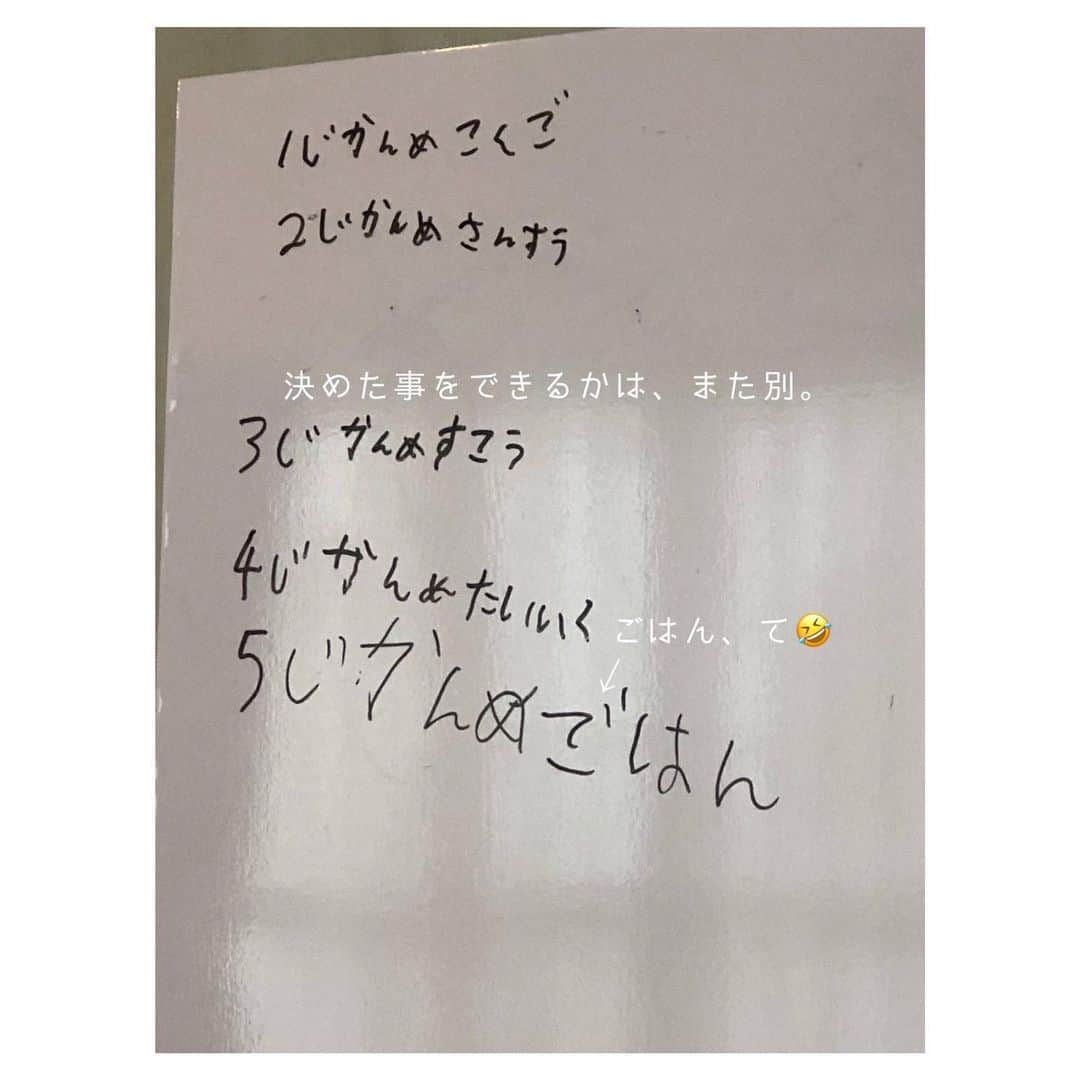 1じかんめ こくご
2じかんめ さんすう
決めた事をできるかは、また別。
3じかんめすこう
4じかんめたいいく
ごはん、て🤣
5じかんめごはん